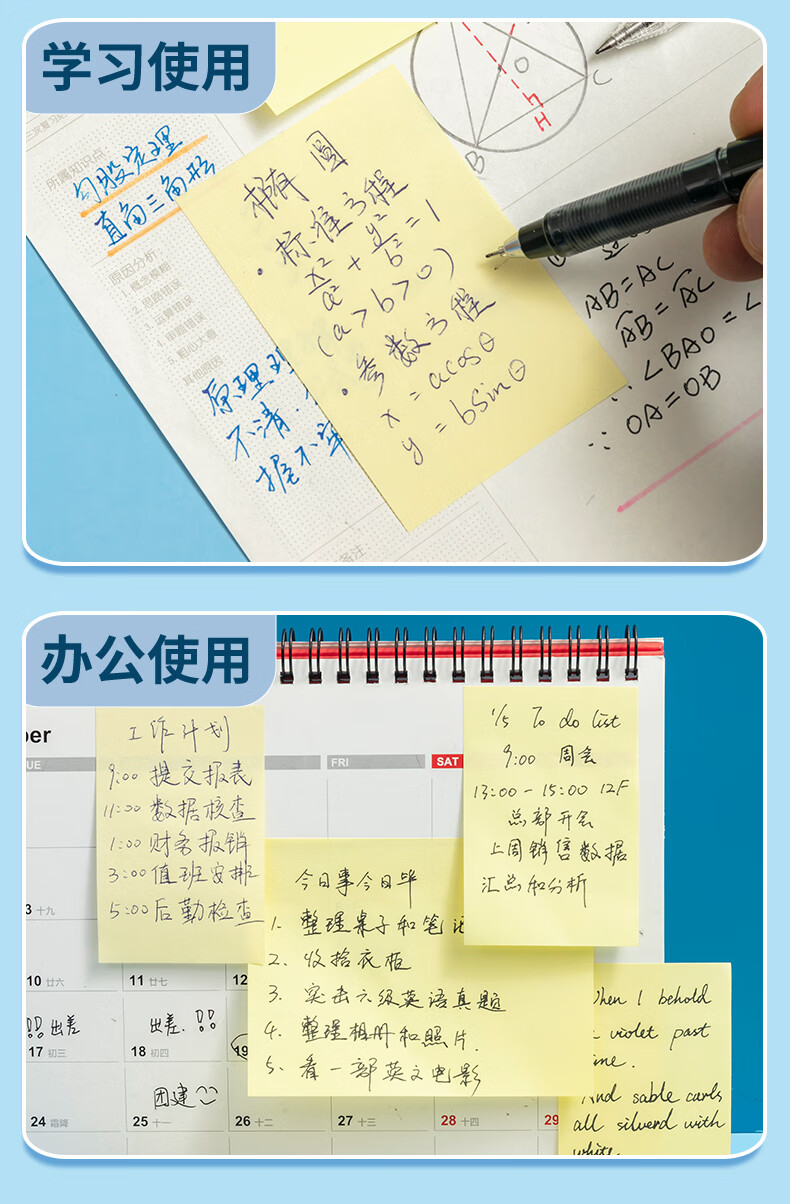 学习使用
所属知识点
勾股定理
直角三角形
原因分析
1. 概念模糊
2. 思路错误
3. 运算错误
4. 审题错误
5. 粗心大意
其他原因
原理理
不清.
握不牢
备注
椭圆
· 标准方程
x²/a² + y²/b² = 1
(a > b > 0)
· 参数方程
x = acosθ
y = bsinθ
O
C
B
H
AB = AC
AB = AC
∴ ∠BAO = ∠
∵ OA = OB
办公使用
ber
UE
FRI
SAT
工作计划
9:00 提交报表
11:00 数据核查
1:00 财务报销
3:00 值班安排
5:00 后勤检查
1/5 To do list
9:00 周会
13:00 - 15:00 12F
总部开会
上周销售数据
汇总和分析
今日事今日毕
1、整理桌子和笔记
2、收拾衣柜
3、突击六级英语真题
4、整理相册和照片.
5、看一部英文电影
When I behold
violet past
ime.
And sable carls
all silverd with
white.
3 十九
10 廿六
11 廿七
12
!! 出差
出差. !!
17 初三
18 初四
19
团建
24 霜降
25 十一
26 十二
27 十三
28 十四
29